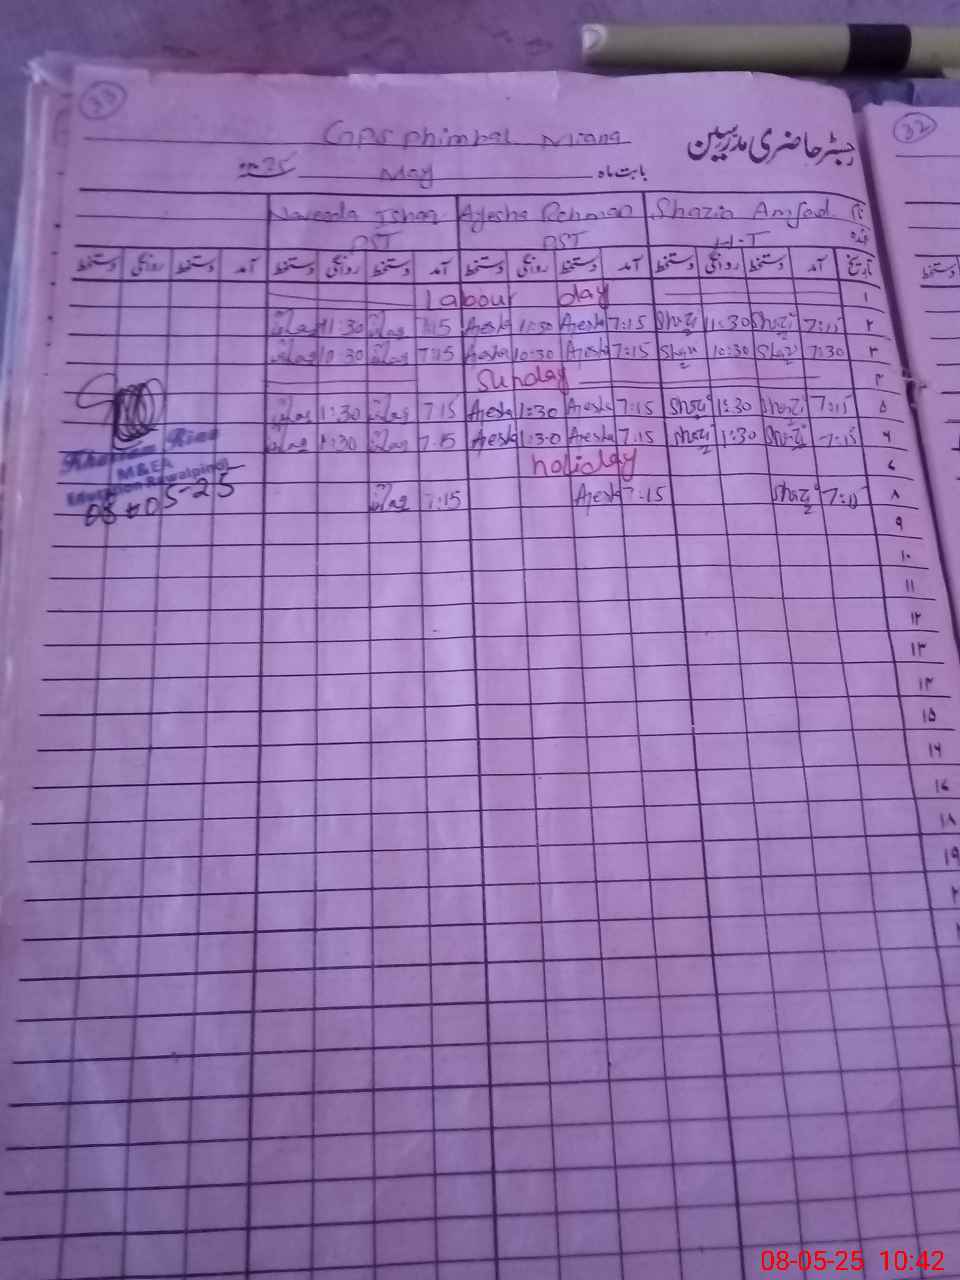 33
GPS Phimbal Miana
رجسٹر حاضری مدرسین
بابت ماہ May 25
نام Shazia Amjad Ayesha Rehman Naveeda Ishaq
عہدہ H.T PST PST
تاریخ آمد دستخط روانگی دستخط آمد دستخط روانگی دستخط آمد دستخط روانگی دستخط آمد دستخط روانگی دستخط
۱ Labour day
۲ 7:15 11:30 7:15 Ayesha 11:30 Ayesha 7:15 11:30
۳ 7:30 10:30 7:15 Ayesha 10:30 7:15 10:30
۴ Sunday
۵ 7:15 1:30 7:15 Ayesha 1:30 Ayesha 7:15 1:30
۶ 7:15 1:30 7:15 Ayesha 1:30 Ayesha 7:15 1:30
۷ holiday
۸ 7:15 7:15 Ayesha 7:15
Khurram Riaz
M&EA
Education Rawalpindi
08-05-25
۹
۱۰
۱۱
۱۲
۱۳
۱۴
۱۵
۱۶
۱۷
۱۸
۱۹
32
دستخط
08-05-25 10:42